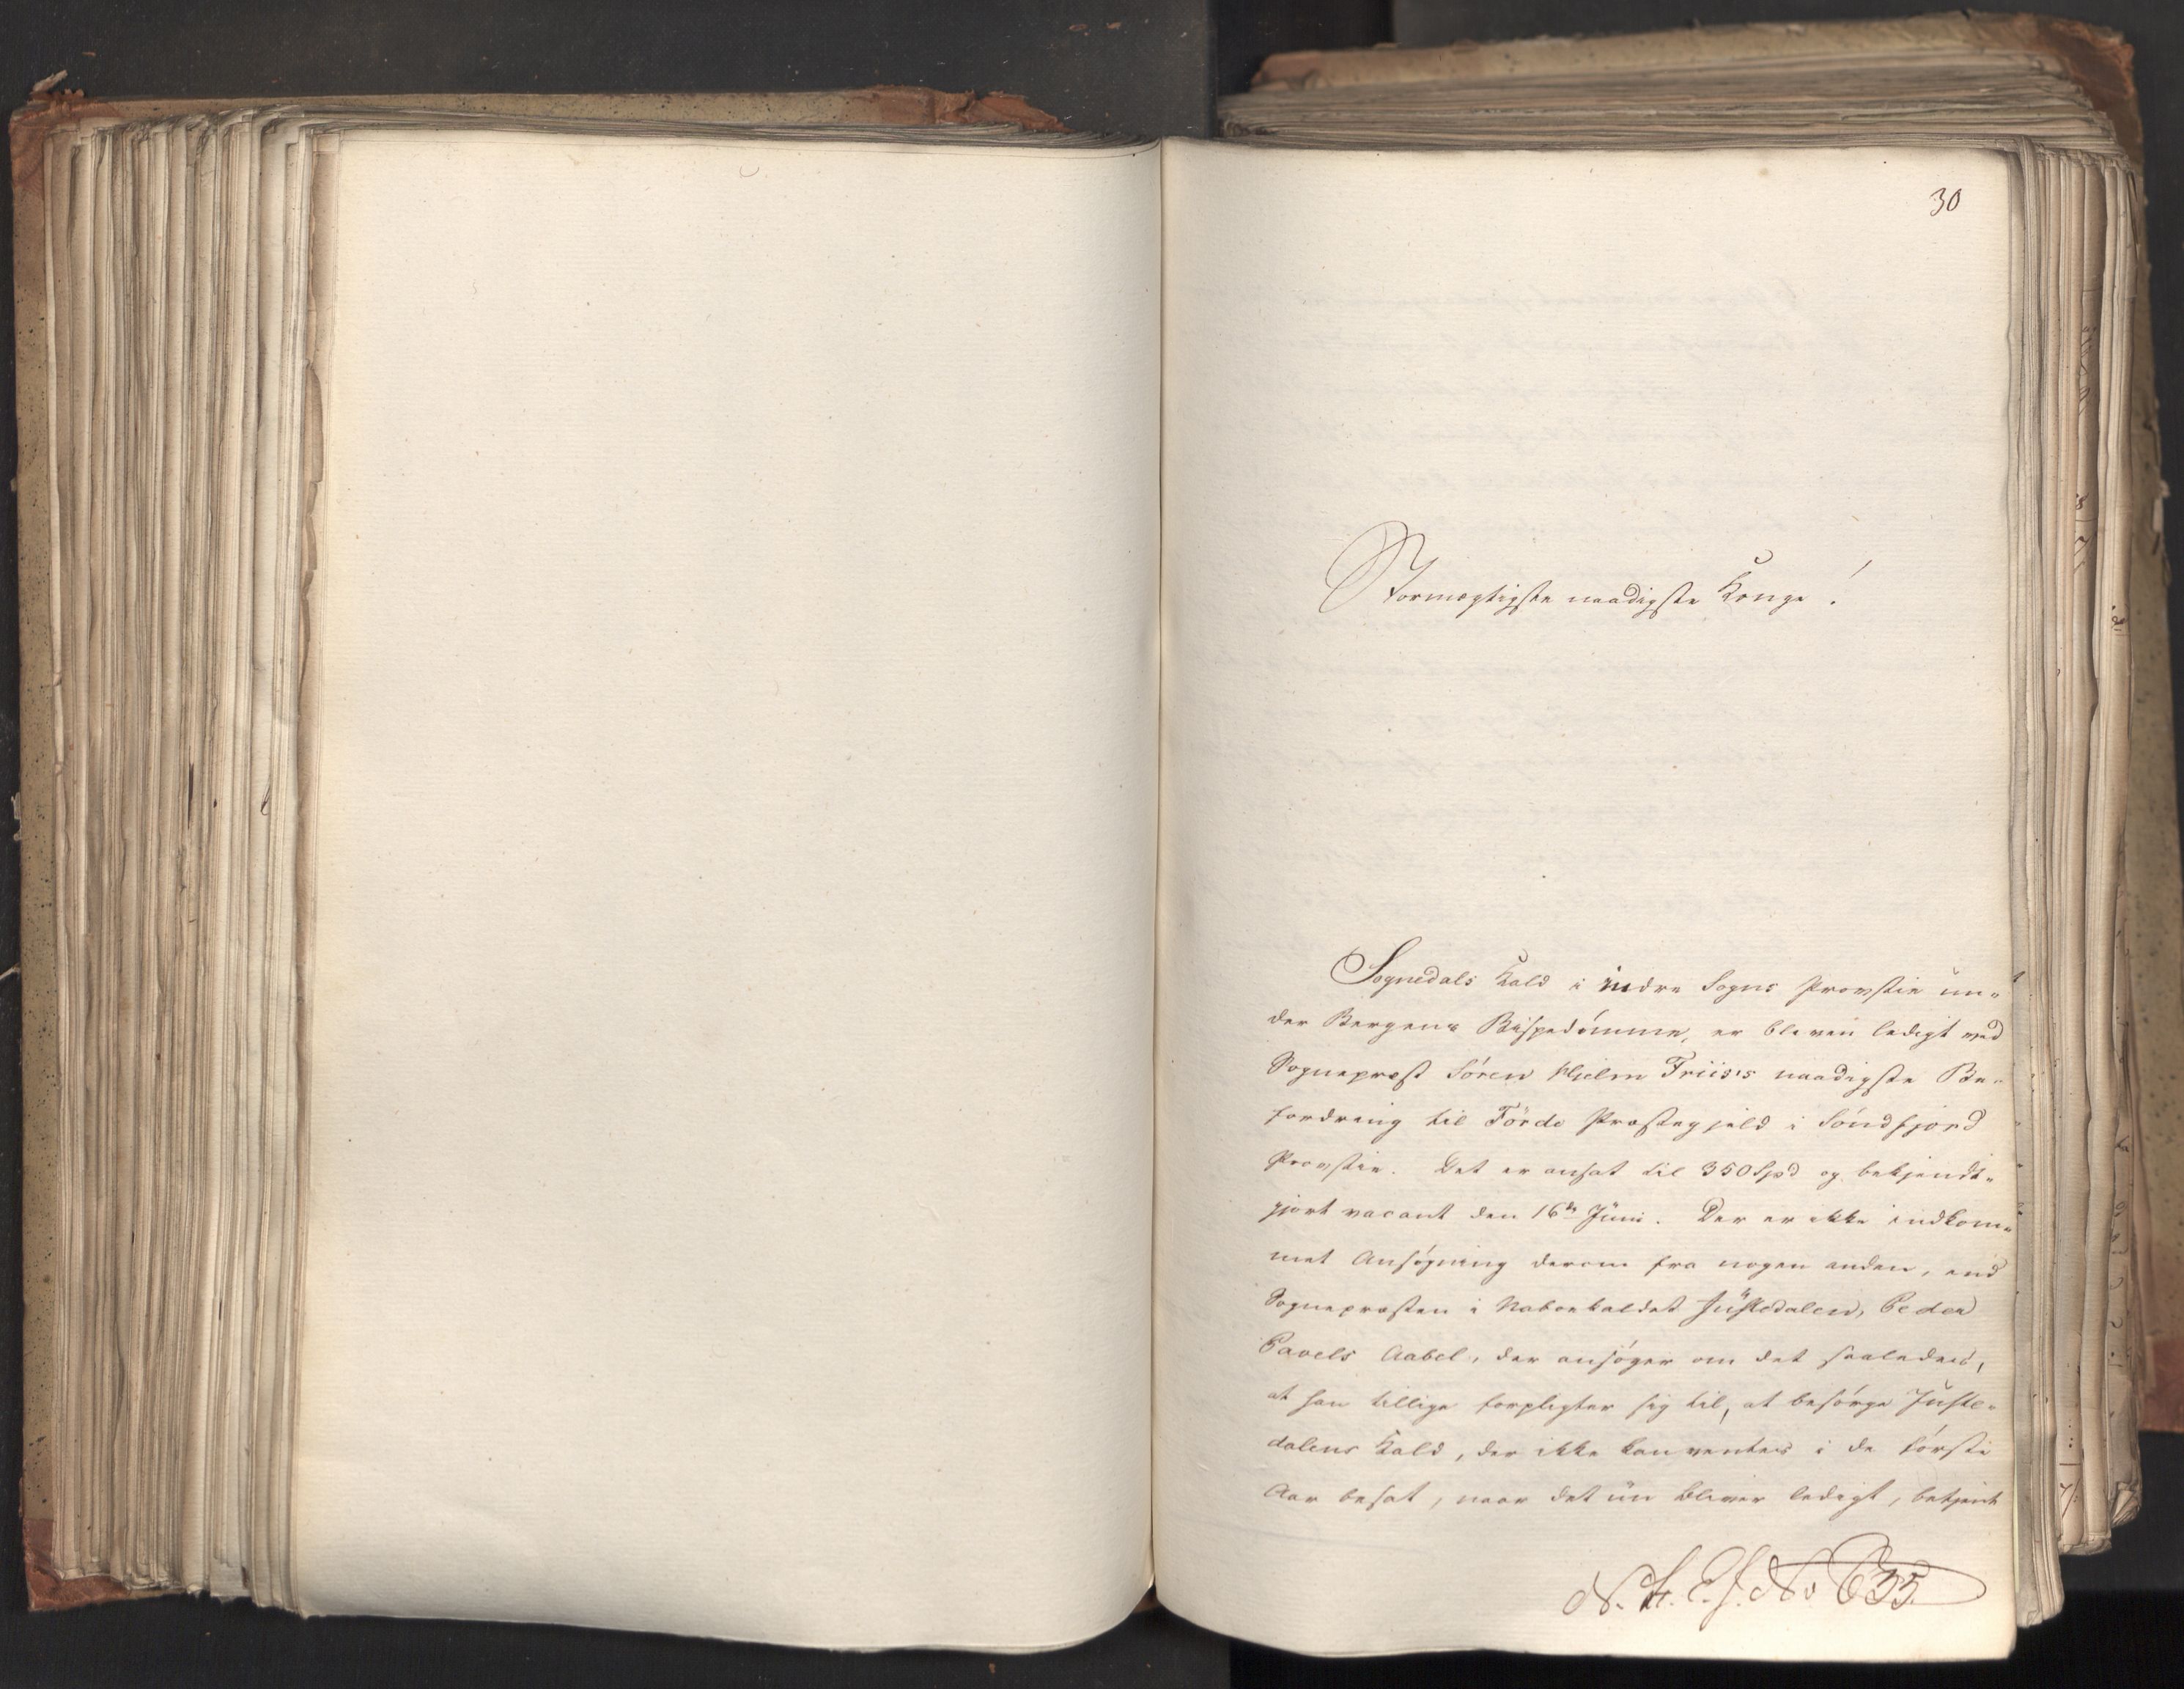 30
Stormægtigste naadigste Konge!
Sognedals Kald i indre Sogns Provstie un-
der Bergens Bispedømme, er bleven ledigt ved
Sognepræst Sören Hjelm Friis's naadigste Be-
fordring til Förde Præstegjeld i Söndfjord
Provstie. Det er ansat til 350 Spd og bekjendt-
gjort vacant den 16de Juni. Der er ikke indkom-
met Ansøgning derom fra nogen anden, end
Sognepræsten i Nabokaldet Justedalen, Peder
Pavels Aabel, der ansøger om det saaledes,
at han tillige forpligter sig til, at besørge Juste-
dalens Kald, der ikke kan ventes i de første
Aar besat, naar det nu bliver ledigt, betjent
No 635.